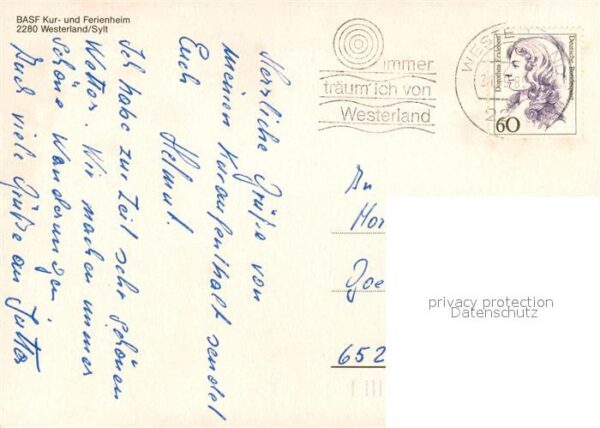 BASF Kur- und Ferienheim
2280 Westerland/Sylt
Herzliche Grüße von
meinen Kuraufenthalt sendet
Euch Helmut.
Ich habe zur Zeit sehr schönen
Wetter. Wir machen immer
schöne Wanderungen
Auch viele Grüße an Jutta
immer
träum' ich von
Westerland
WESTE
2
Dorothea Erxleben
Deutsche Bundespost
60
An
Doe
652
privacy protection
Datenschutz